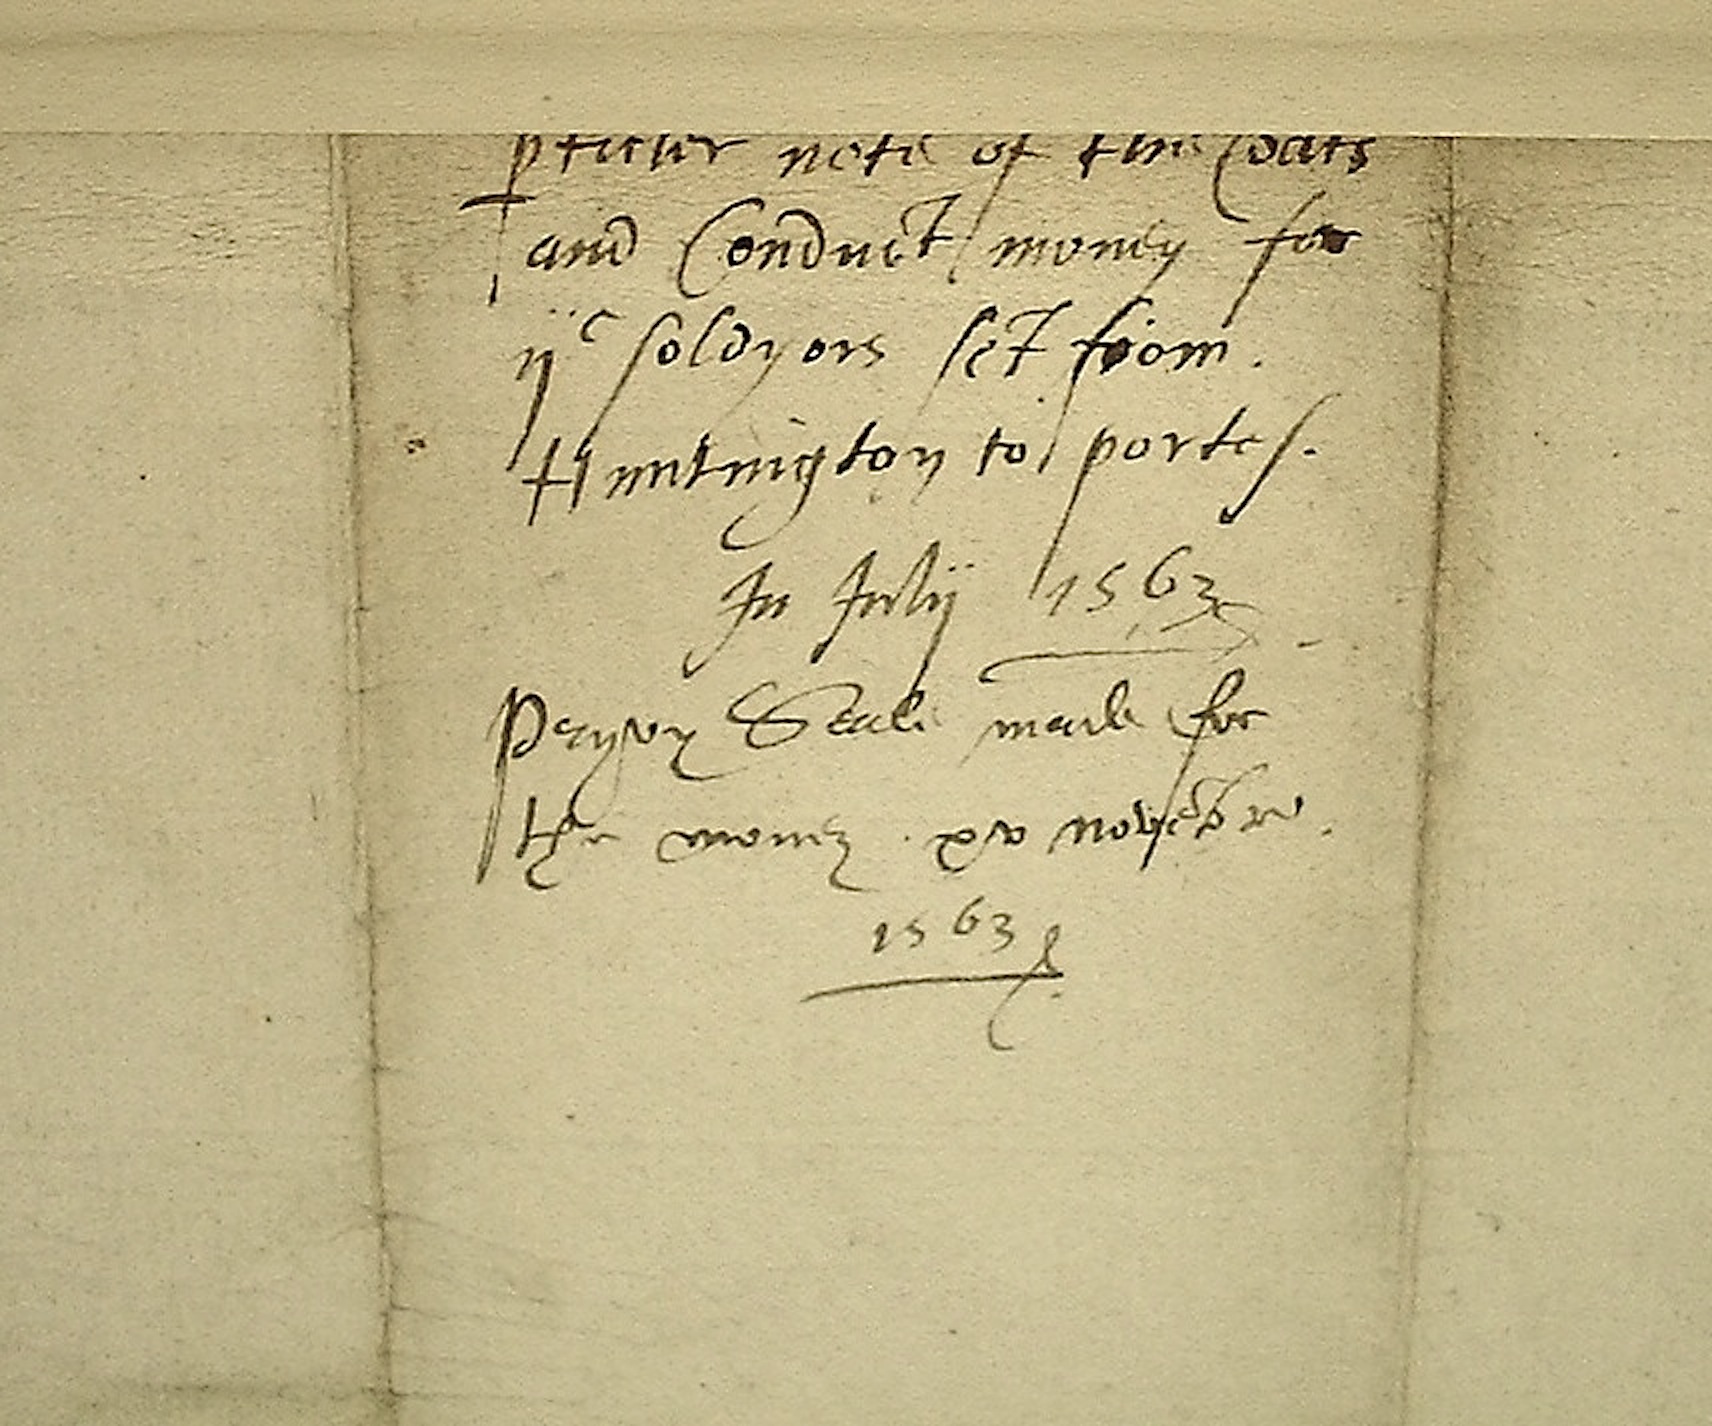 pticuler note of the Coats
and Conduct money for
ijc soldyors set from.
Huntington to portes.
In Julij 1563
Pryvy Seale made for
the money xv novebre.
1563